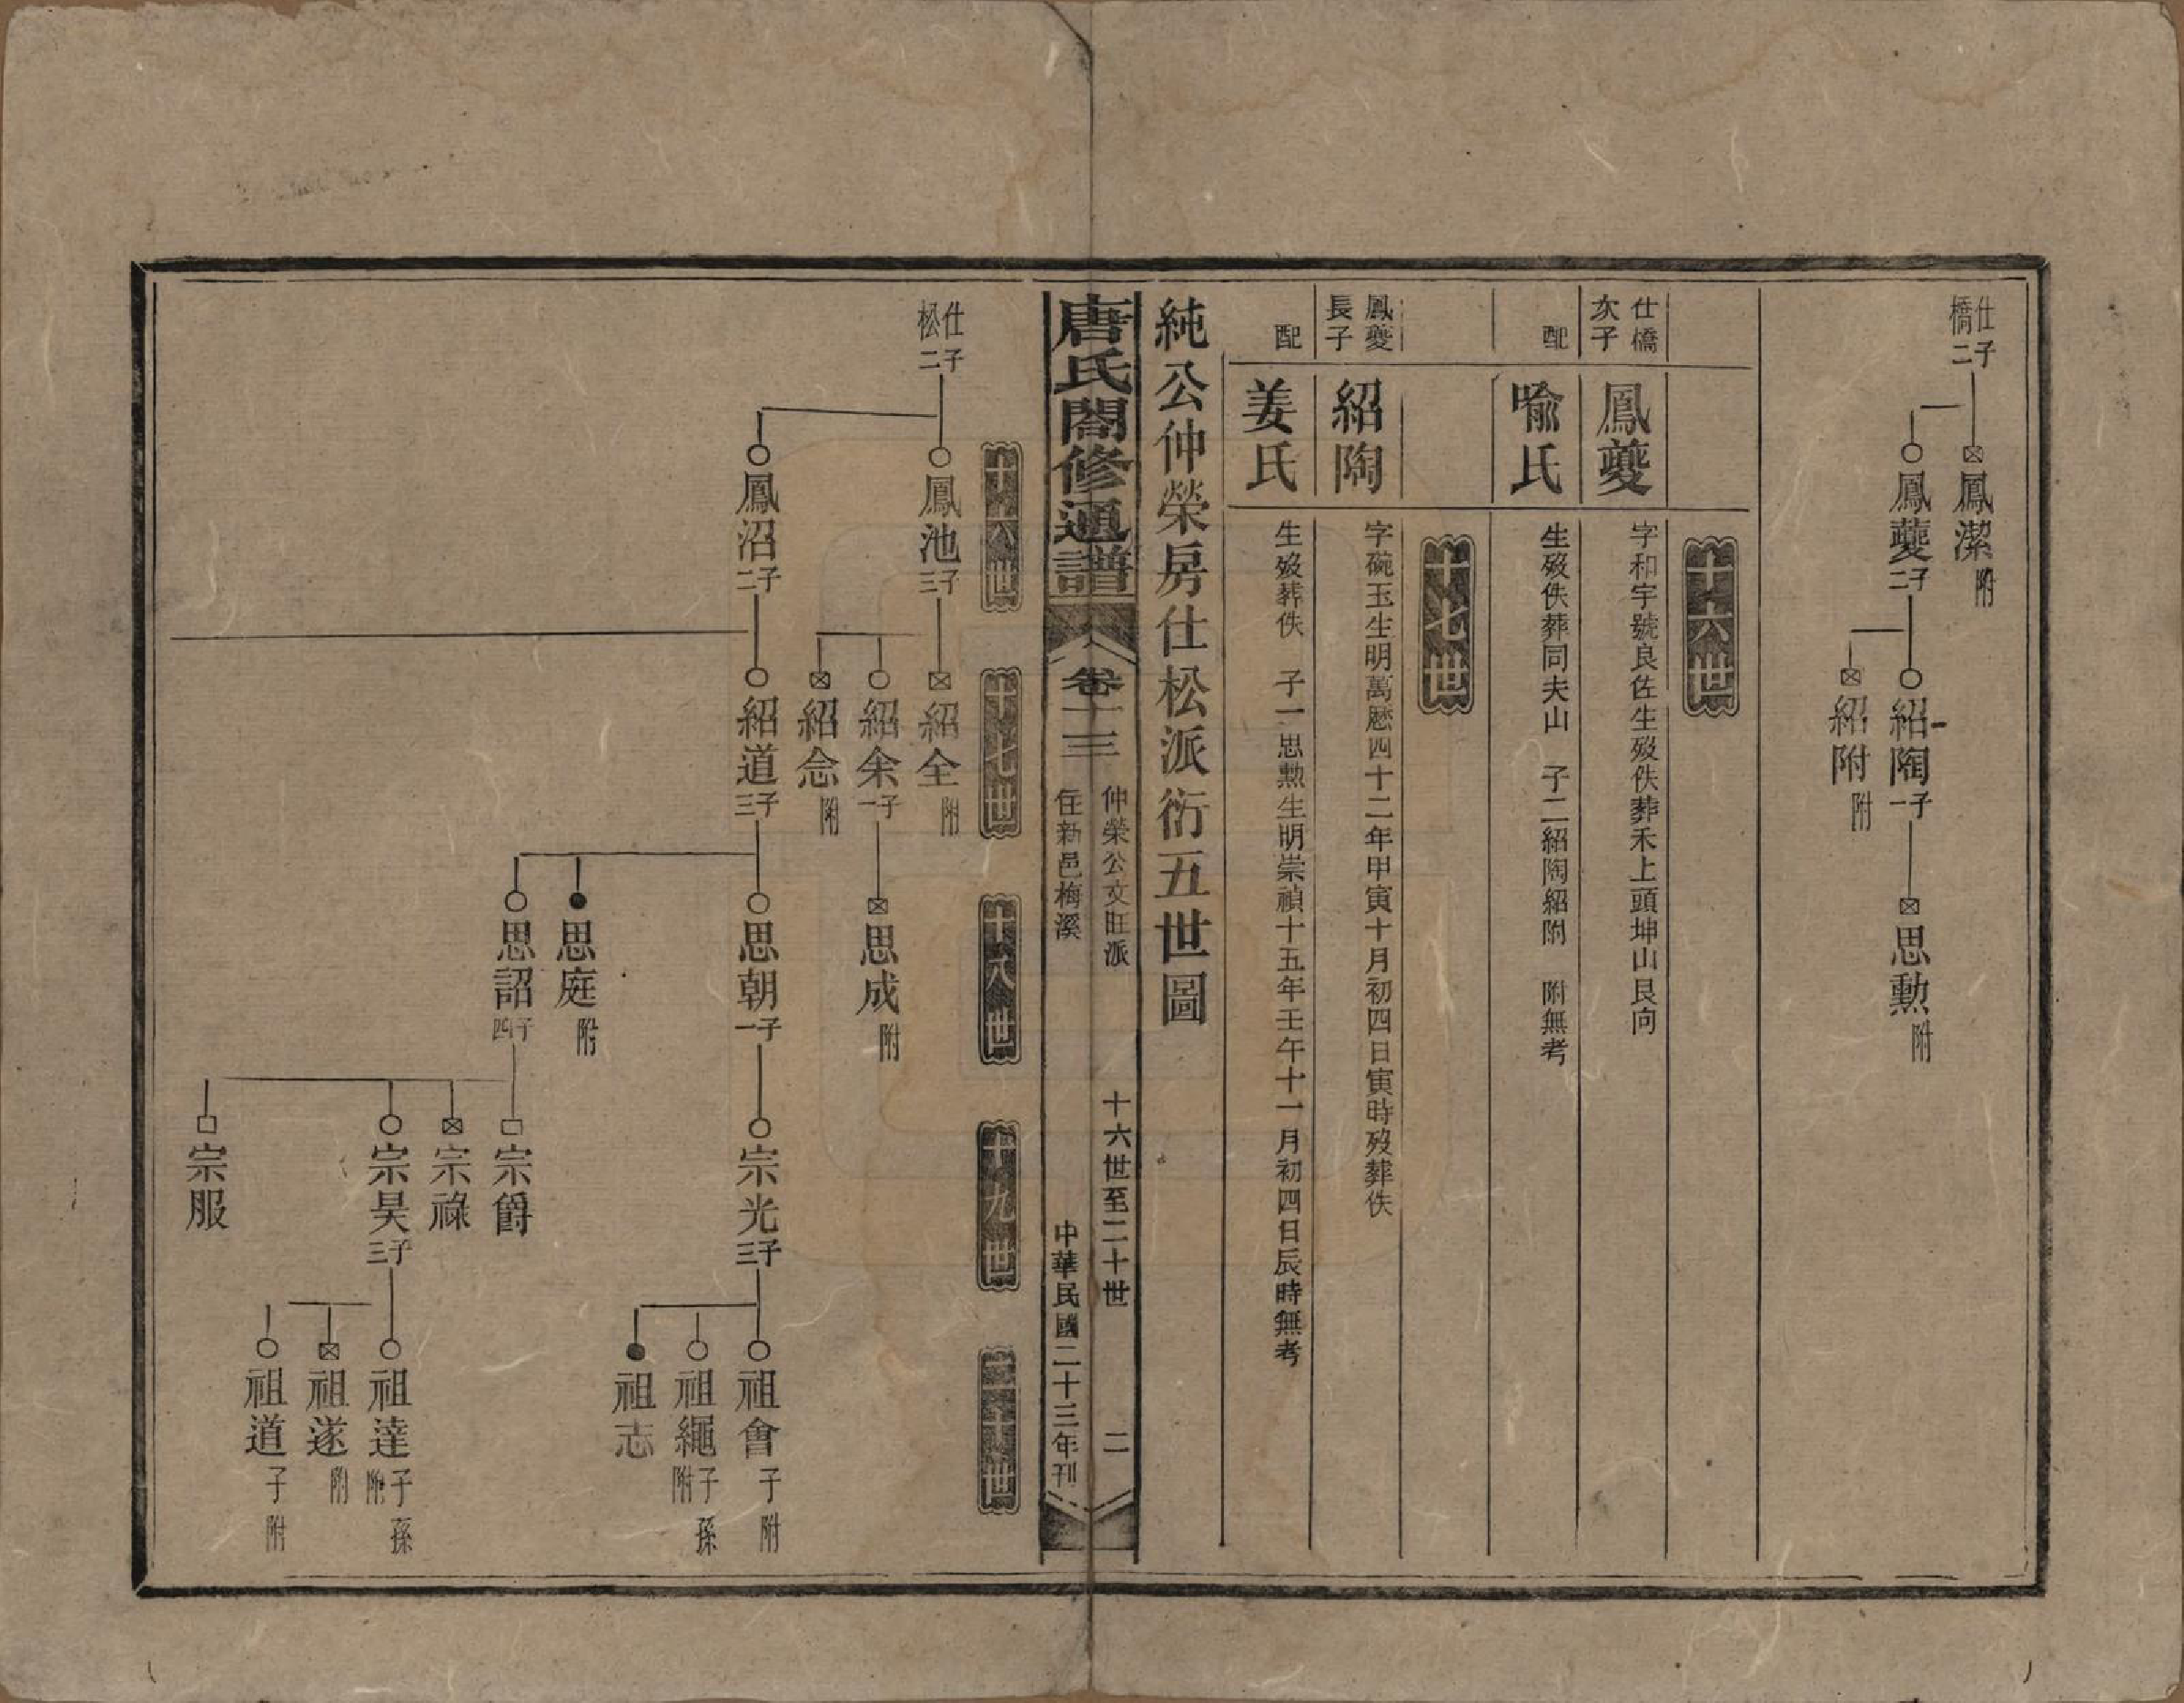 仕橋二子
鳳潔附
鳳夔二子
紹陶一子
紹附附
思勲附
十六世
仕橋次子
鳳夔
字和宇號良佐生歿佚葬禾上頭坤山艮向
配
喻氏
生歿佚葬同夫山 子二紹陶紹附 附無考
十七世
鳳夔長子
紹陶
字碗玉生明萬厯四十二年甲寅十月初四日寅時歿葬佚
配
姜氏
生歿葬佚 子一思勲生明崇禎十五年壬午十一月初四日辰時無考
純公仲榮房仕松派衍五世圖
唐氏閤修通譜
卷十三
仲榮公文旺派
住新邑梅溪
十六世至二十世
二
中華民國二十三年刊
十六世
十七世
十八世
十九世
二十世
仕松二子
鳳池三子
鳳沼二子
紹全附
紹余一子
紹念附
紹道三子
思成附
思朝一子
思庭附
思詔四子
宗光三子
宗爵
宗祿
宗昊三子
宗服
祖會子附
祖繩子孫附
祖志
祖達子孫附
祖遂附
祖道子附